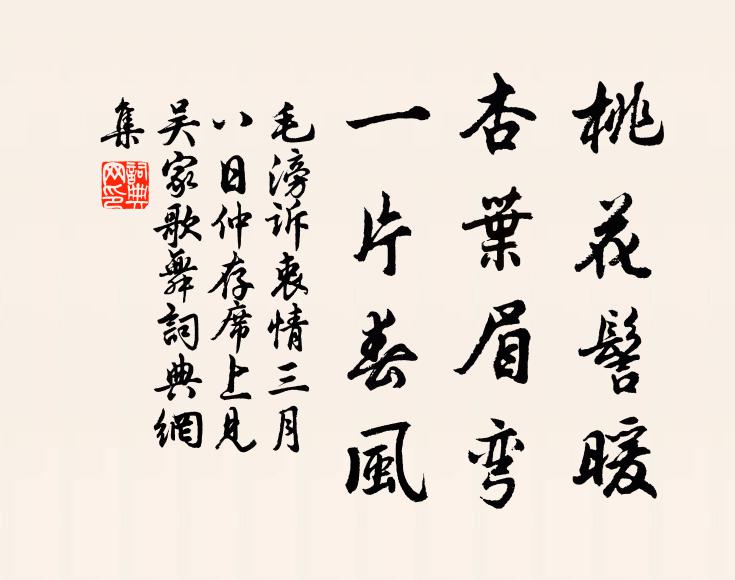 桃花髻暖
杏葉眉彎
一片春風
毛滂訴衷情三月
八日仲存席上見
吳家歌舞詞典網
集
詞典
网印